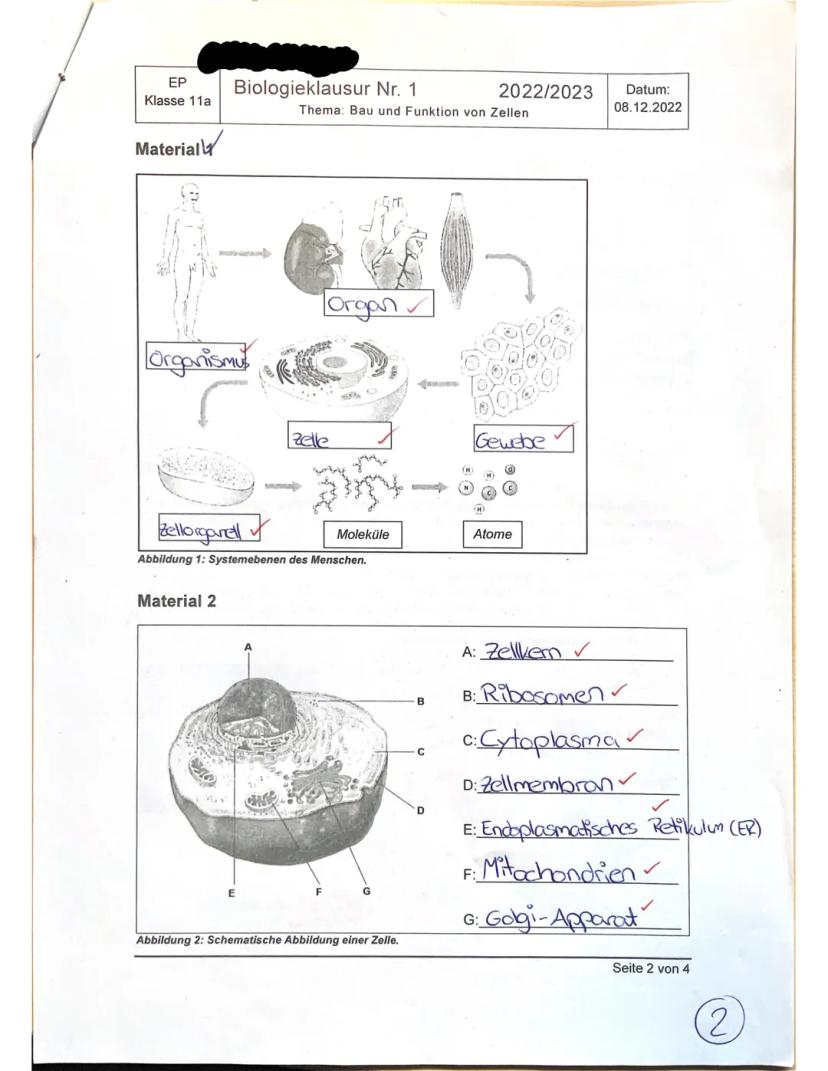 EP
Klasse 11a
Biologieklausur Nr. 1 2022/2023
Thema: Bau und Funktion von Zellen
Datum:
08.12.2022
Material 1
Organ
Organismus
Zelle
Gewebe
H H O
N C C
H
Zellorganell
Moleküle
Atome
Abbildung 1: Systemebenen des Menschen.
Material 2
A
B
C
D
E
F
G
A: Zellkern
B: Ribosomen
C: Cytoplasma
D: Zellmembran
E: Endoplasmatisches Retikulum (ER)
F: Mitochondrien
G: Golgi-Apparat
Abbildung 2: Schematische Abbildung einer Zelle.
Seite 2 von 4
2